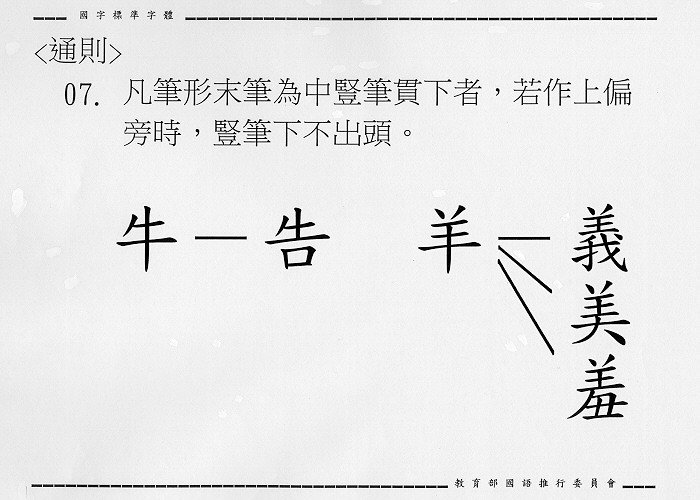 國字標準字體
<通則>
07. 凡筆形末筆為中豎筆貫下者，若作上偏
旁時，豎筆下不出頭。
牛 — 告 羊 — 義
美
羞
教育部國語推行委員會